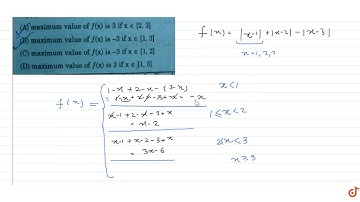 (A) maximum value of f(x) is 3 if x ∈ [2, 3]
(B) maximum value of f(x) is –3 if x ∈ [1, 3]
(C) maximum value of f(x) is –3 if x ∈ [1, 2]
(D) maximum value of f(x) is 3 if x ∈ [1, 3]
f(x) = |x-1| + |x-2| - |x-3|
x=1,2,3
f(x) =
1-x + 2-x - (3-x)
= -x
x<1
x-1+2-x-3+x
= x-2
1≤x<2
x-1+x-2-3+x
= 3x-6
2≤x<3
x≥3